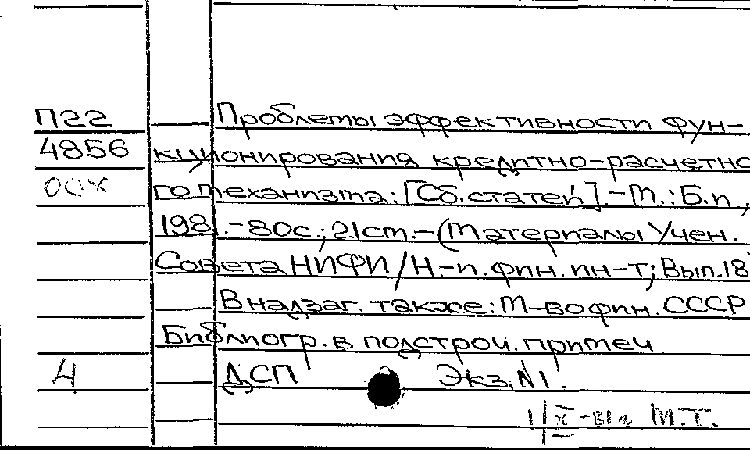 П22
4856
Проблемы эффективности фун-
кционирования кредитно-расчетно
го механизма: [Сб. статей]. - М.: Б.и.,
1981. - 80с.; 21см. - (Материалы Учен.
Совета НИФИ / Н.-и. фин. ин-т; Вып. 18
В надзаг. также: М-во фин. СССР
Библиогр. в подстроч. примеч
4
ДСП Экз. №1.
М.Т.